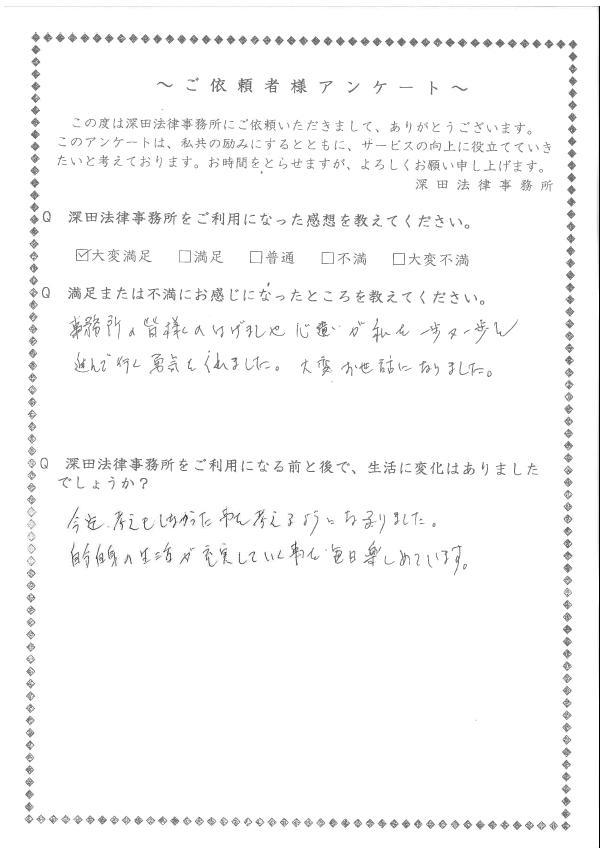 ～ご依頼者様アンケート～
この度は深田法律事務所にご依頼いただきまして、ありがとうございます。
このアンケートは、私共の励みにするとともに、サービスの向上に役立てていき
たいと考えております。お時間をとらせますが、よろしくお願い申し上げます。
深田法律事務所
Q 深田法律事務所をご利用になった感想を教えてください。
☑大変満足 □満足 □普通 □不満 □大変不満
Q 満足または不満にお感じになったところを教えてください。
事務所の皆様のはげましや心遣いが私を一歩々一歩と
進んで行く勇気をくれました。大変お世話になりました。
Q 深田法律事務所をご利用になる前と後で、生活に変化はありました
でしょうか？
今迄、考えもしなかった事を考えるようになりました。
自分自身の生活が充実していく事を毎日楽しめています。